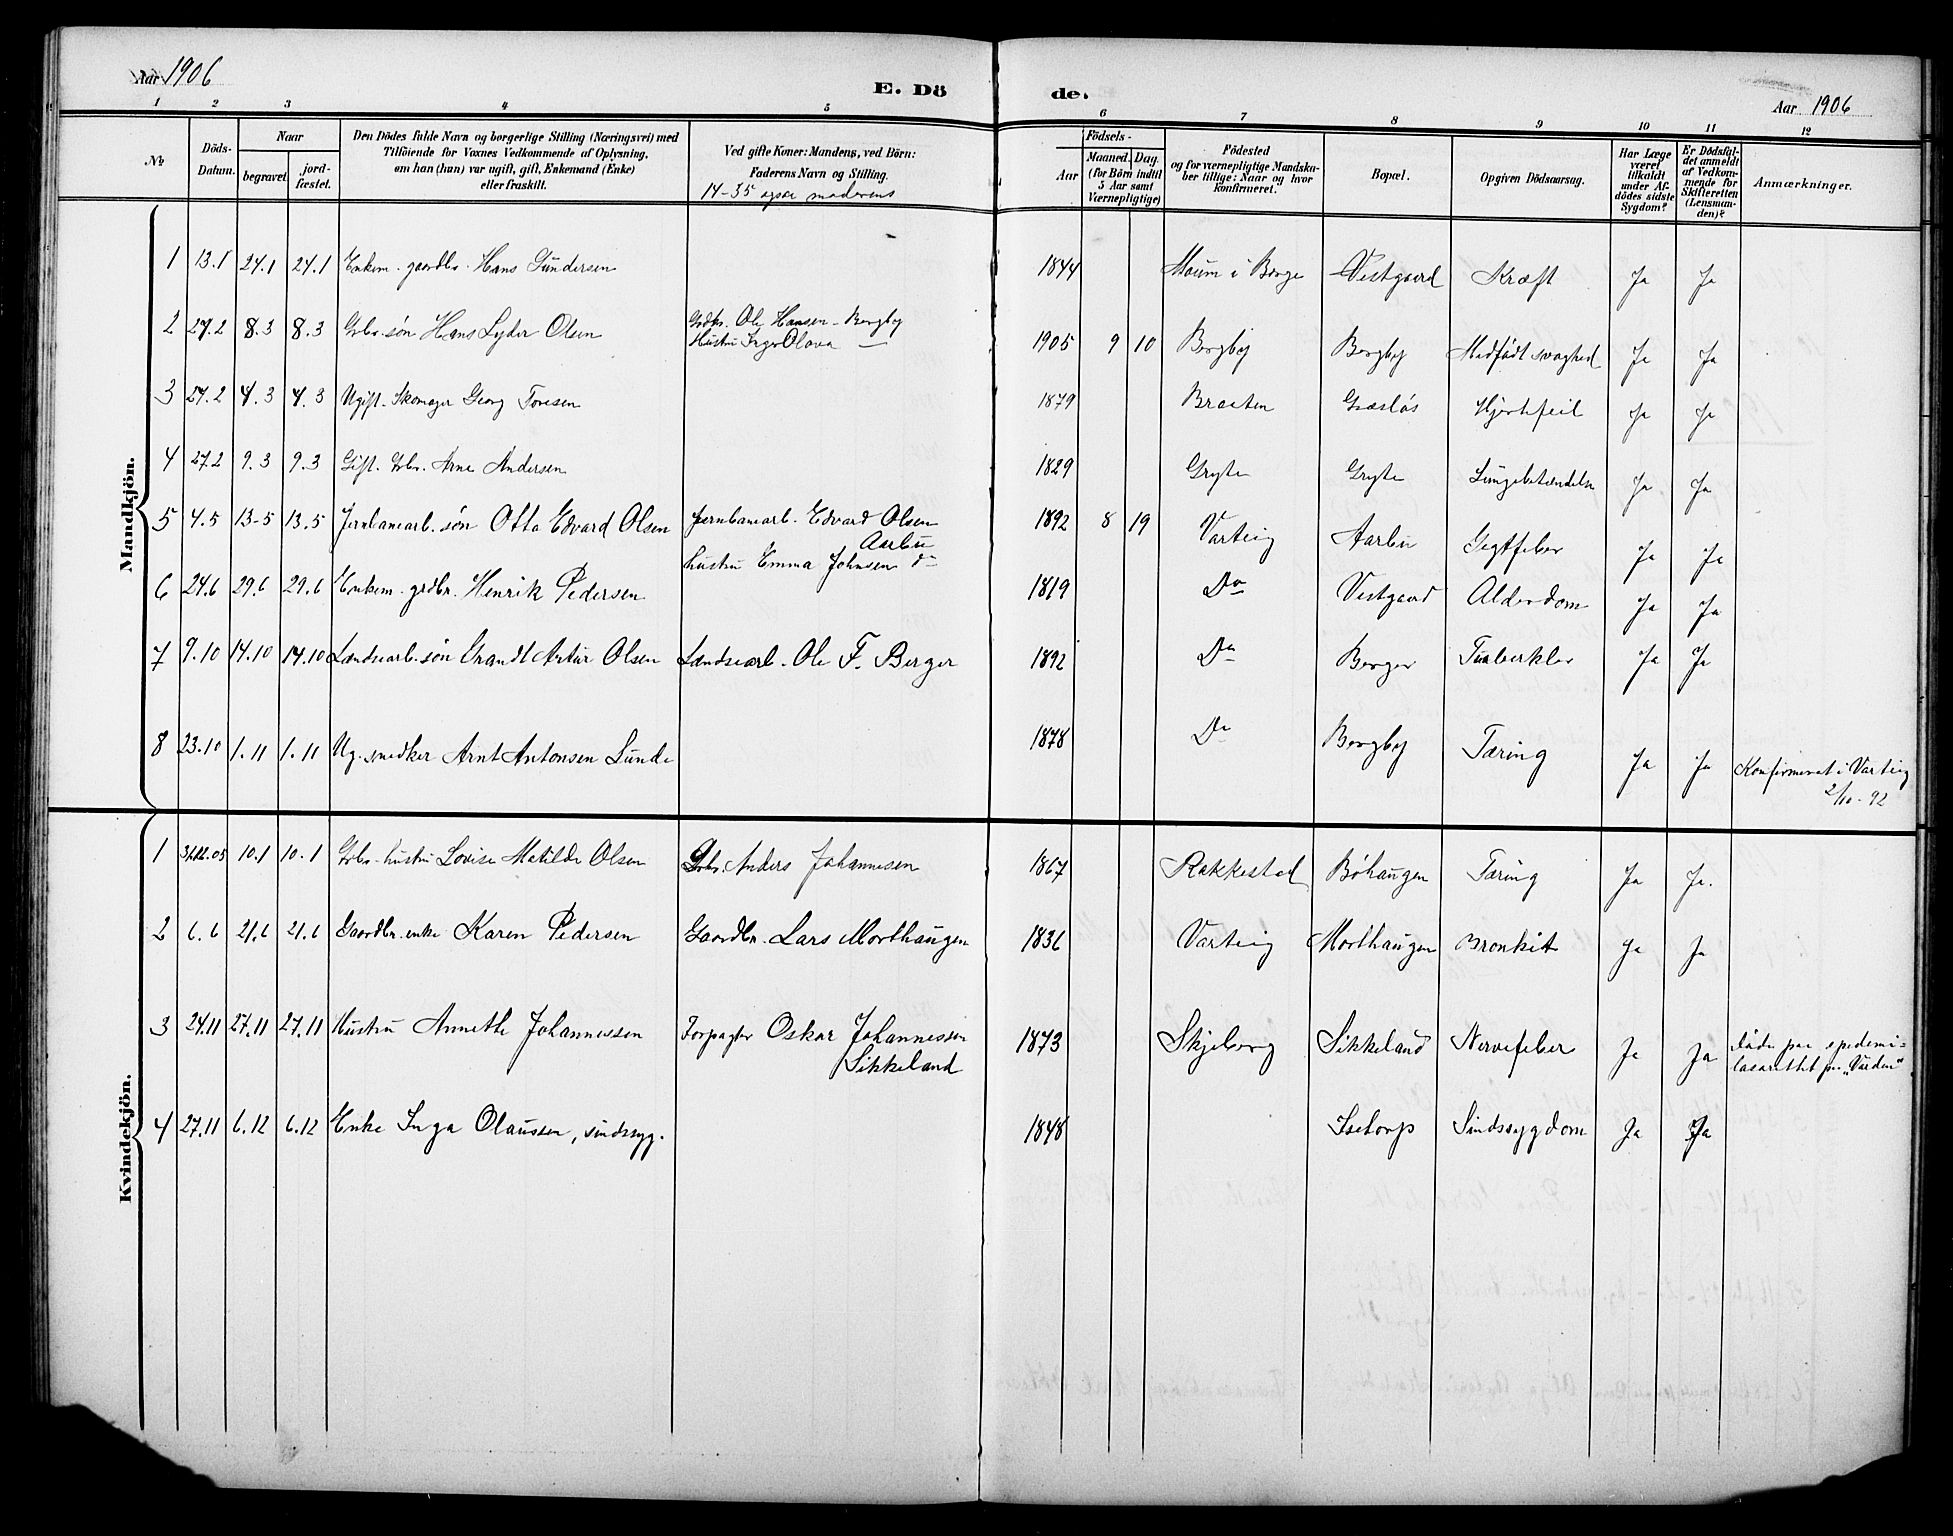 Aar 1906
E. Dö de.
Aar 1906
1 2 3 4 5 6 7 8 9 10 11 12
№
Döds-
Datum.
Naar
begravet.
jord-
fæstet.
Den Dödes fulde Navn og borgerlige Stilling (Næringsvei) med
Tilföiende for Voxnes Vedkommende af Oplysning,
om han (hun) var ugift, gift, Enkemand (Enke)
eller fraskilt.
Ved gifte Koner: Mandens, ved Börn:
Faderens Navn og Stilling.
14-35 ogsaa moderens
Födsels-
Aar
Maaned.
Dag.
(for Börn indtil
5 Aar samt
Værnepligtige)
Födested
og for værnepligtige Mandska-
ber tillige: Naar og hvor
konfirmeret.
Bopæl.
Opgiven Dödsaarsag.
Har Læge
været
tilkaldt
under Af-
dödes sidste
Sygdom?
Er Dödsfal-
det anmeldt
af Vedkom-
mende for
Skifteretten
(Lensman-
den)?
Anmærkninger.
Mandkjön.
1 13.1 24.1 24.1 Enkem. gaardbr. Hans Gundersen 1844 Moum i Borge Vestgaard Kræft Ja Ja
2 27.2 8.3 8.3 Gbr. søn Hans Lyder Olsen Grdbr. Ole Hansen - Bergby
Hustru Inger Olava — 1905 9 10 Bergby Bergby Medfødt svaghed Ja Ja
3 24.2 4.3 4.3 Ugift. Skomager Georg Toresen 1879 Braaten Græsløs Hjertefeil Ja Ja
4 27.2 9.3 9.3 Gift. Gbr. Arne Andersen 1829 Gryte Gryte Lungebetændelse Ja Ja
5 4.5 13.5 13.5 Jernbanearb. søn Otto Edvard Olsen Jernbanearb. Edvard Olsen
Aarbu
hustru Emma Johnsen do 1892 8 19 Varteig Aarbu Gigtfeber Ja Ja
6 24.6 29.6 29.6 Enkem. grdbr. Henrik Pedersen 1819 Do Vestgaard Alderdom Ja Ja
7 9.10 14.10 14.10 Landsearb. søn Brandt Artur Olsen Landsearb. Ole F. Berger 1892 Do Berger Tuberkler Ja Ja
8 23.10 1.11 1.11 Ug. snedker Arnt Antonsen Lunde 1878 Do Bergby Tæring Ja Ja Konfirmeret i Varteig
2/10-92
Kvindekjön.
1 31.12.05 10.1 10.1 Gbr. hustru Lovise Matilde Olsen Gbr. Anders Johannesen 1867 Rakkestad Böhaugen Tæring Ja Ja.
2 6.6 21.6 21.6 Gaardbr. enke Karen Pedersen Gaardbr. Lars Morthaugen 1836 Varteig Morthaugen Bronkit Ja Ja
3 24.11 27.11 27.11 Hustru Annethe Johannessen Forpagter Oskar Johannessen
Sikkeland 1873 Skjeberg Sikkeland Nervefeber Ja Ja døde paa epidemi-
lasarettet paa "Varden"
4 27.11 6.12 6.12 Enke Inga Olaussen, sindssyg. 1848 Isetorp Sindssygdom Ja Ja